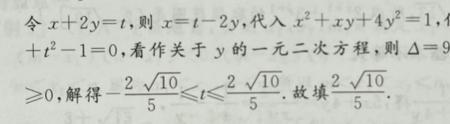 令 x+2y=t,则 x=t-2y,代入 x²+xy+4y²=1,
+t²-1=0,看作关于 y 的一元二次方程,则 Δ=9
≥0,解得-2√10/5≤t≤2√10/5.故填2√10/5.